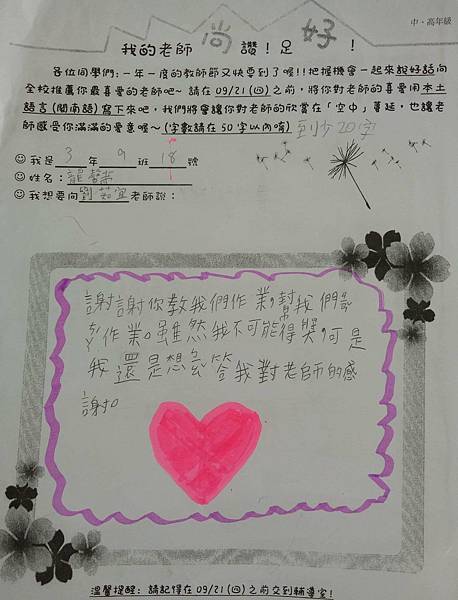 中、高年級
我的老師 尚 讚!足 好 !
各位同學們:一年一度的教師節又快要到了喔!!把握機會一起來說好話向
全校推薦你最喜愛的老師吧~ 請在 09/21(四)之前,將你對老師的喜愛用本土
語言(閩南語)寫下來吧,我們將會讓你對老師的欣賞在「空中」蔓延,也讓老
師感受你滿滿的愛意喔~(字數請在50字以內唷) 至少20字
☺我是 3 年 9 班 18 號
☺姓名:龍
☺我想要向 劉茹宜 老師說:
謝謝你教我們作業,幫我們
ㄞ作業。雖然我不可能得獎,可是
我還是想ㄠ 答我對老師的感
謝。
溫馨提醒: 請記得在09/21(四)之前交到輔導室!